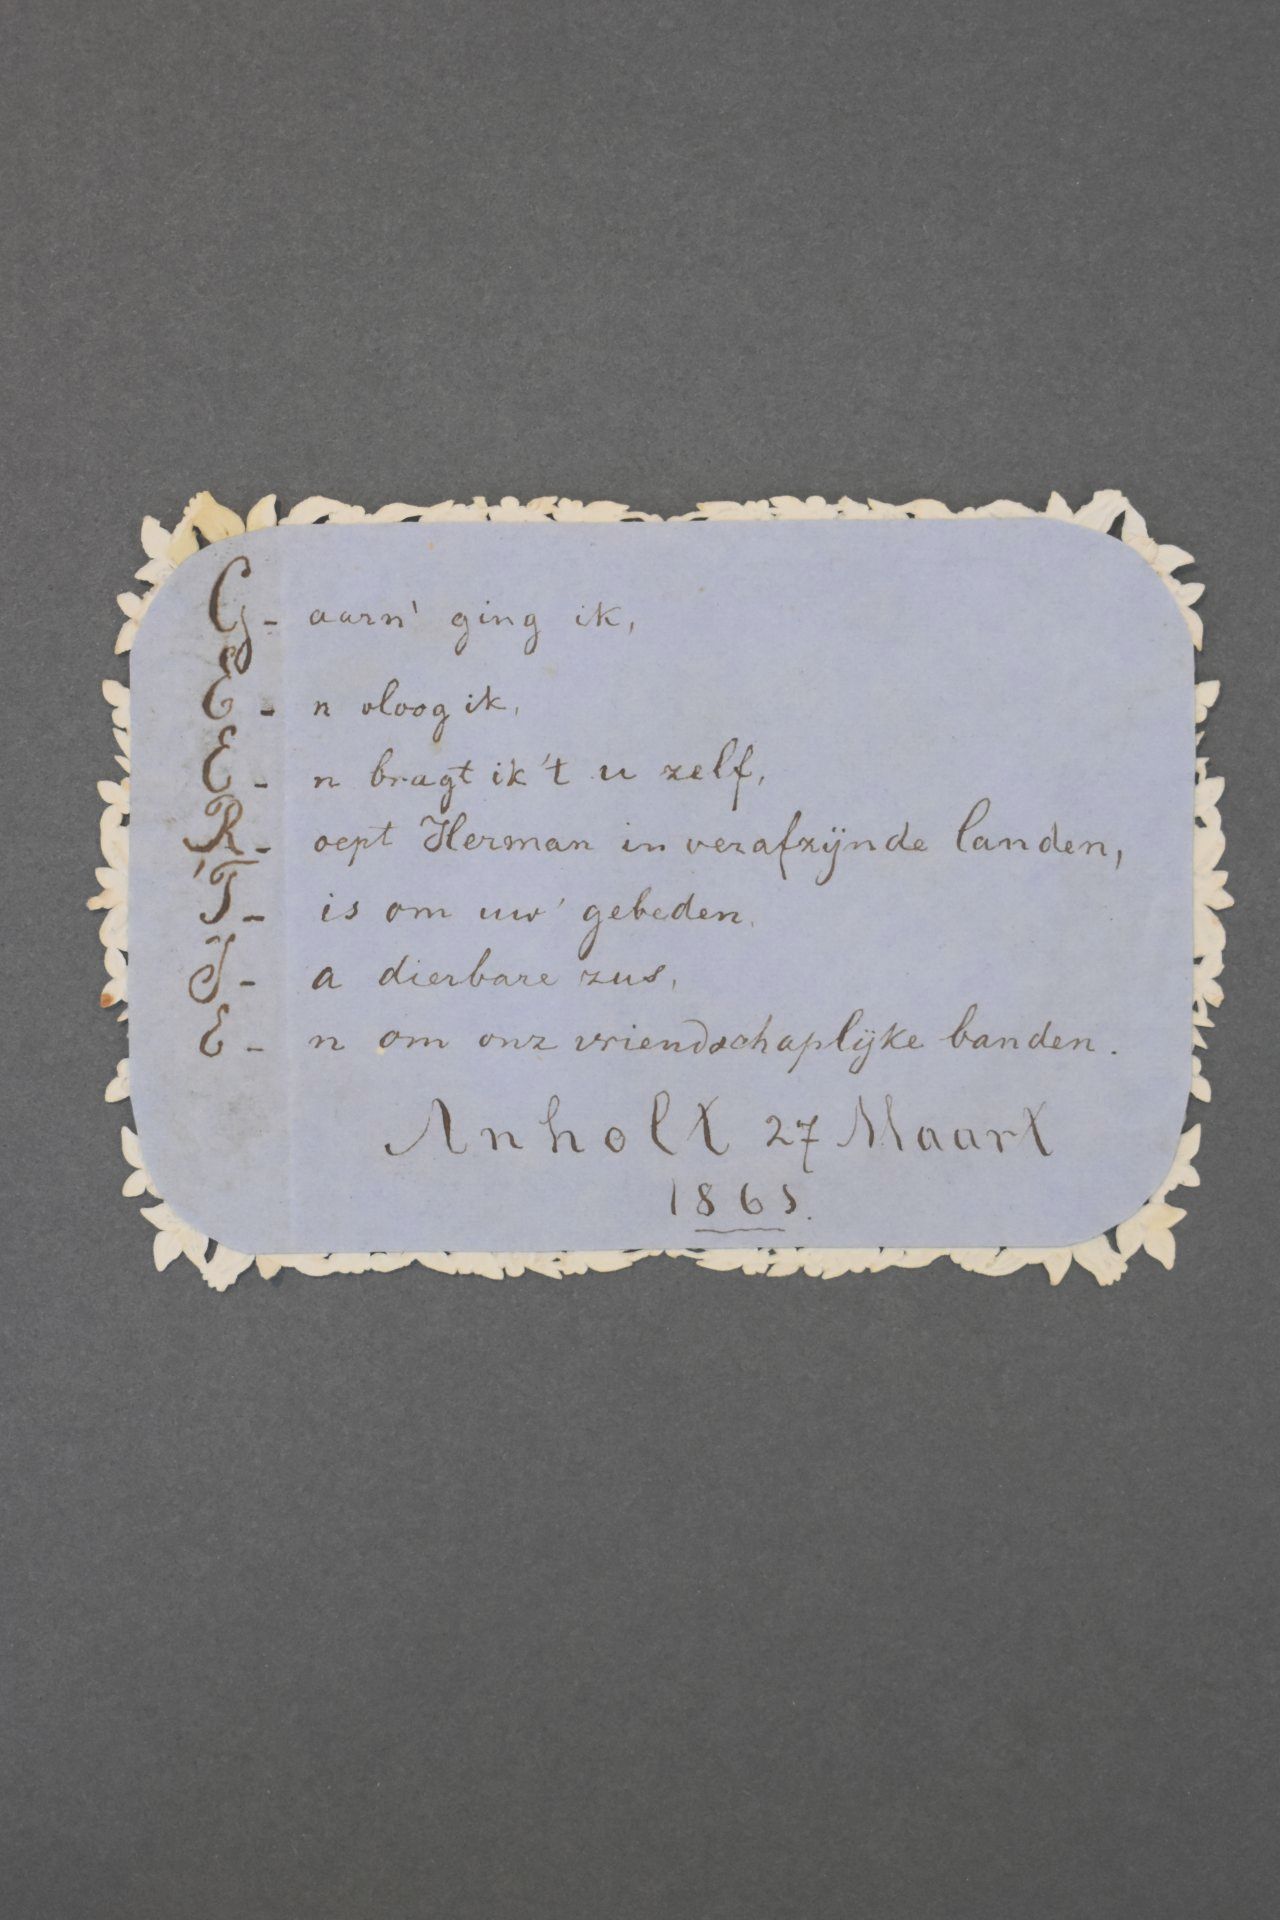 G- aarn' ging ik,
E- n vloog ik,
E- n bragt ik 't u zelf,
R- oept Herman in verafzijnde landen,
'T- is om uw' gebeden,
J- a dierbare zus,
E- n om onz vriendschaplijke banden.
Anholt 27 Maart
1865.